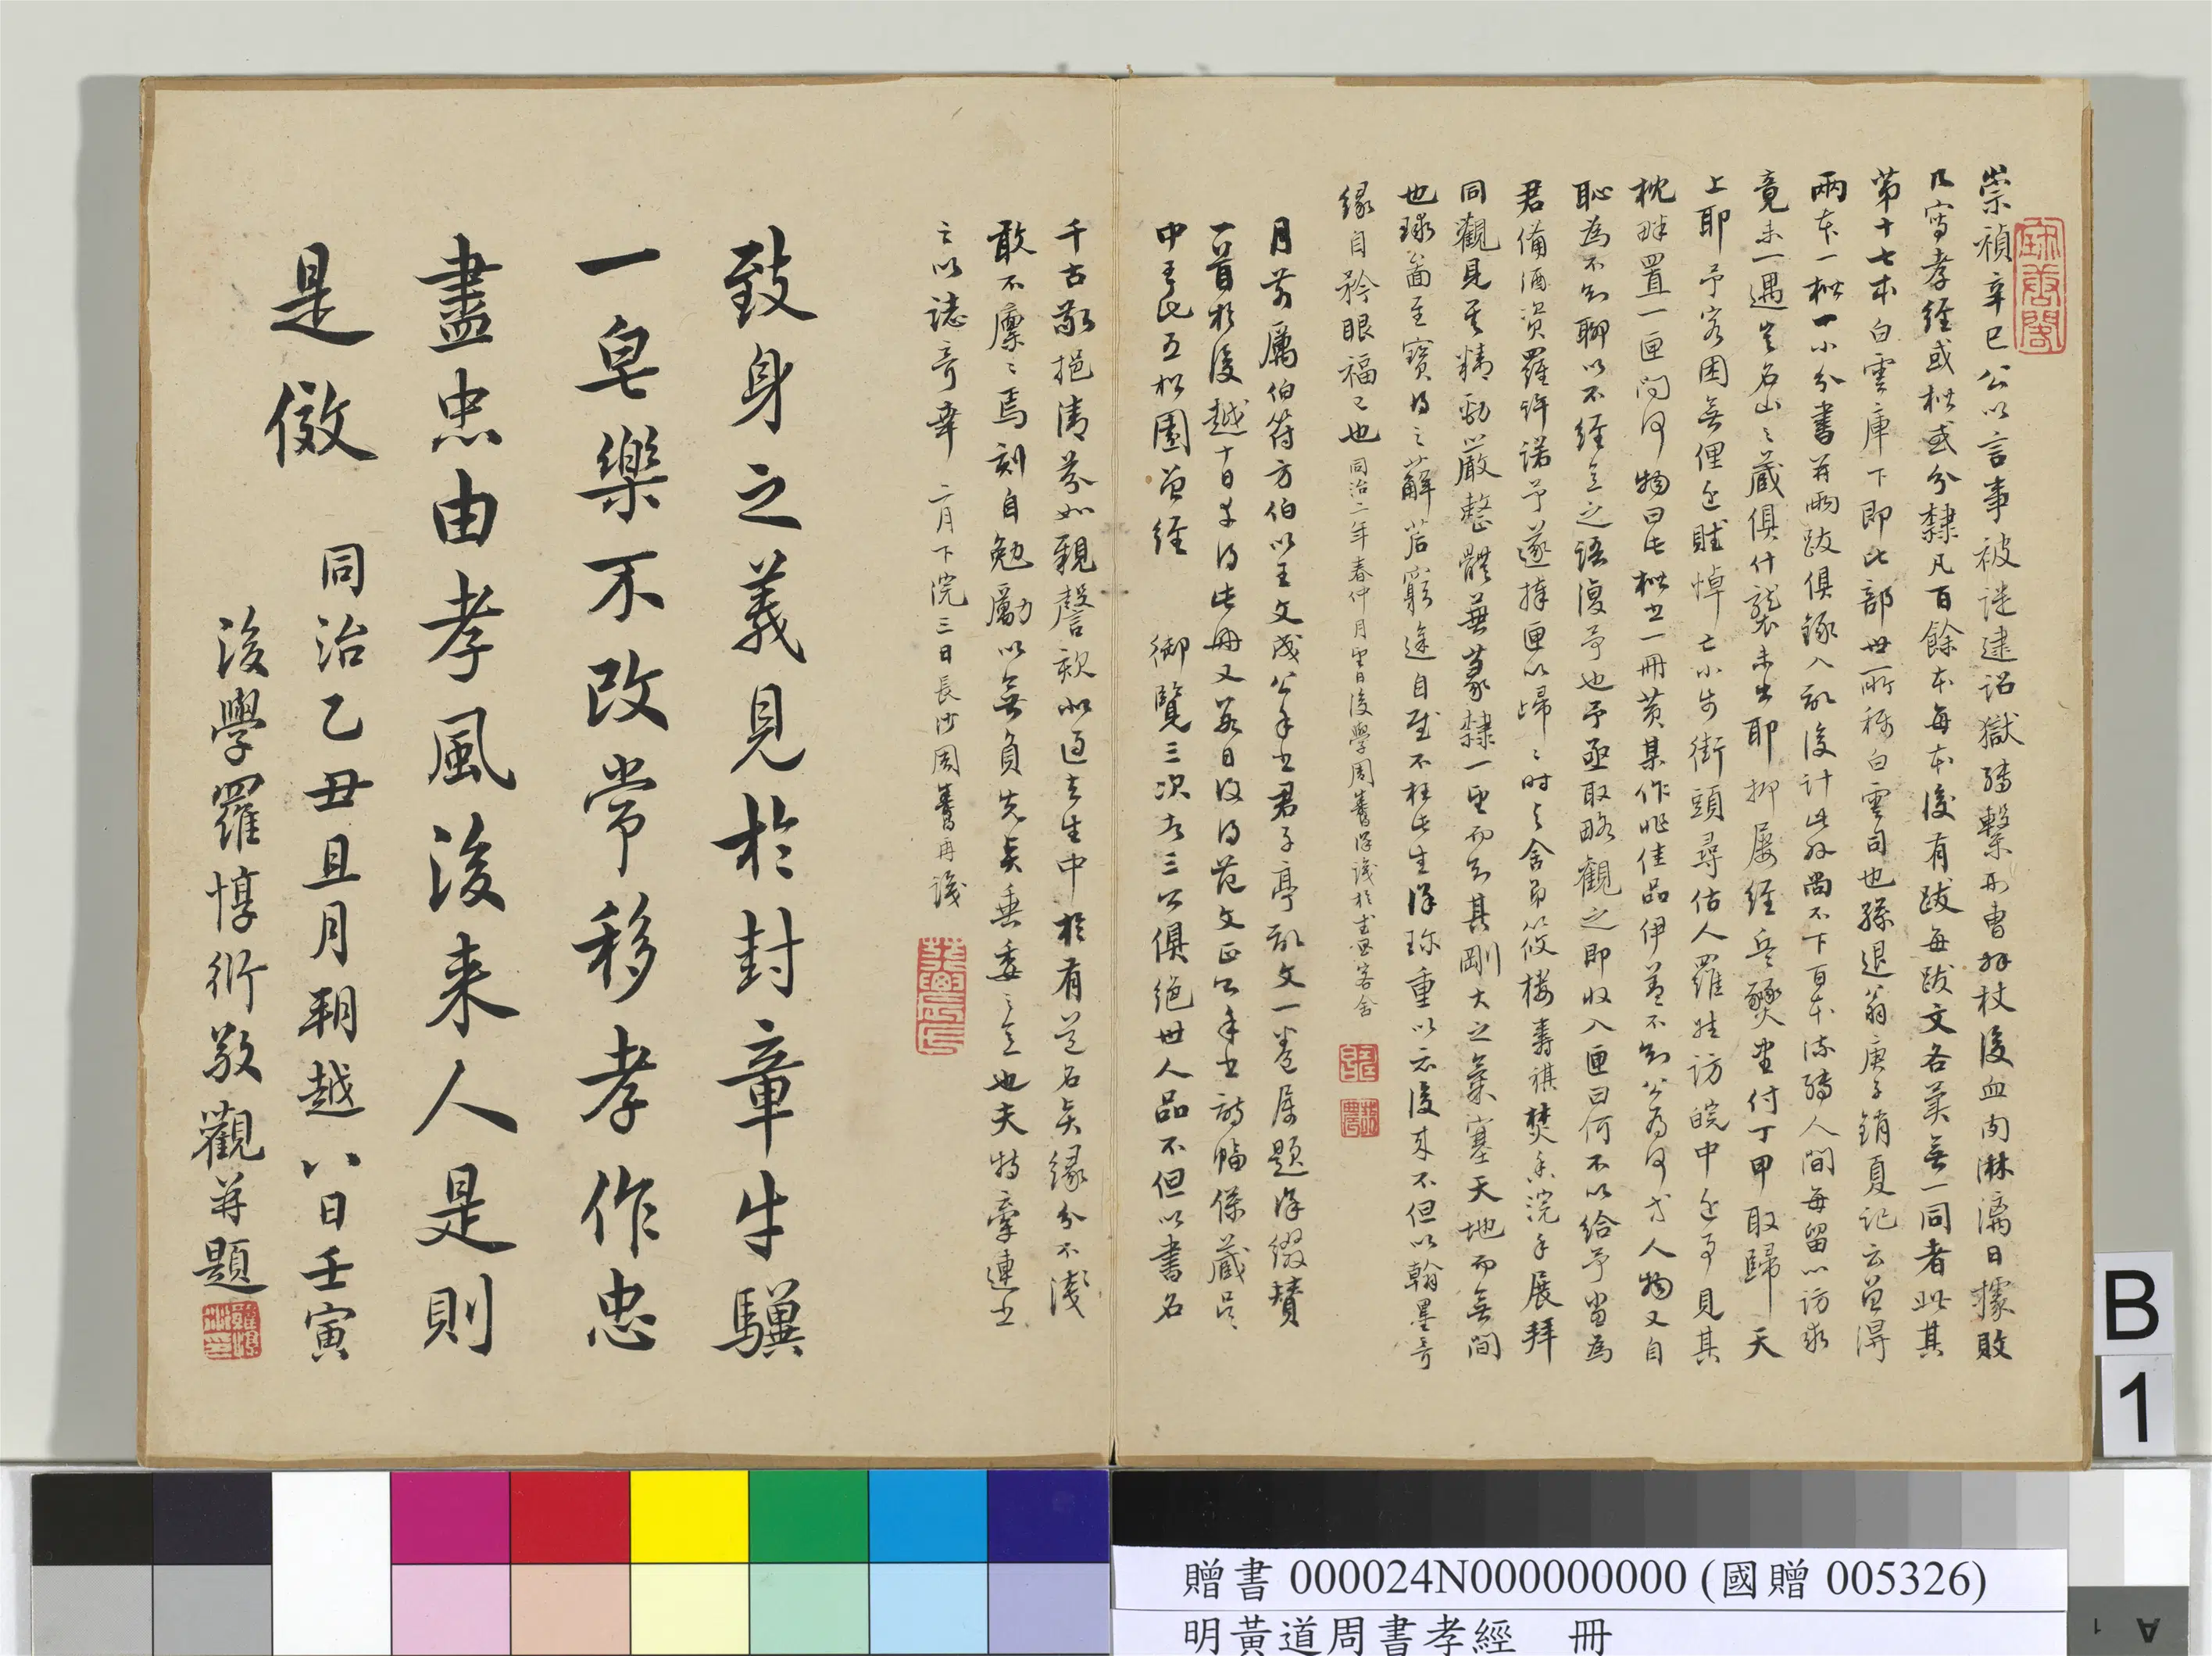 崇禎辛巳公以言事被逮詔獄騎繫刑曹拜杖後血肉淋漓日據敗
几寫孝經或楷或分隸凡百餘本每本後有跋每跋文各異無一同者此其
第十七本白雲庫下即比部世所稱白雲司也孫退翁庚子銷夏記云曾得
兩本一楷一小分書並兩跋俱錄入記後計此外尚不下百本流
人間每留心訪求
竟未一遇豈名山之藏俱什襲未出耶抑屢經兵燹盡付丁甲取歸天
上耶予客困無俚近賦悼亡小步街頭尋估人羅姓訪皖中近事見其
枕畔置一匣問何物曰此楷書一冊黃某作非佳品伊蓋不知公為何代人物又自
恥為不知聊以不經意之語復予也予亟取略觀之即收入匣曰何不以給予當為
君備酒資羅許諾予遂捧匣以歸歸時與舍弟筱樓壽祺焚香浣手展拜
同觀見其精勁嚴整體兼篆隸一望而知其剛大之氣塞天地而無間
也球圖至寶得之蘚苔窮途自慰不枉此生謹珍重以示後來不但以翰墨奇
緣自矜眼福已也同治二年春仲月望日後學周謹識於客舍
月前屬伯符方伯以王文成公手書君子亭記文一卷屬題謹綴贊
一首於後越十日予得此冊又數日復得范文正公手書詩幅係藏
中有此五松園曾經　御覽三次者三公俱絕世人品不但以書名
千古敬挹清芬如親謦欬似過去生中於有道名矣緣分不淺
敢不凜凜焉刻自勉勵以無負先矣垂委之意也夫特牽連書
之以誌奇幸　二月下浣三日長沙周再識
致身之義見於封章牛驥
一皂樂不改常移孝作忠
盡忠由孝風後来人是則
是傚　同治乙丑且月朔越八日壬寅
後學羅惇衍敬觀並題
B
1
贈書 000024N000000000 (國贈 005326)
明黃道周書孝經　冊
A
1